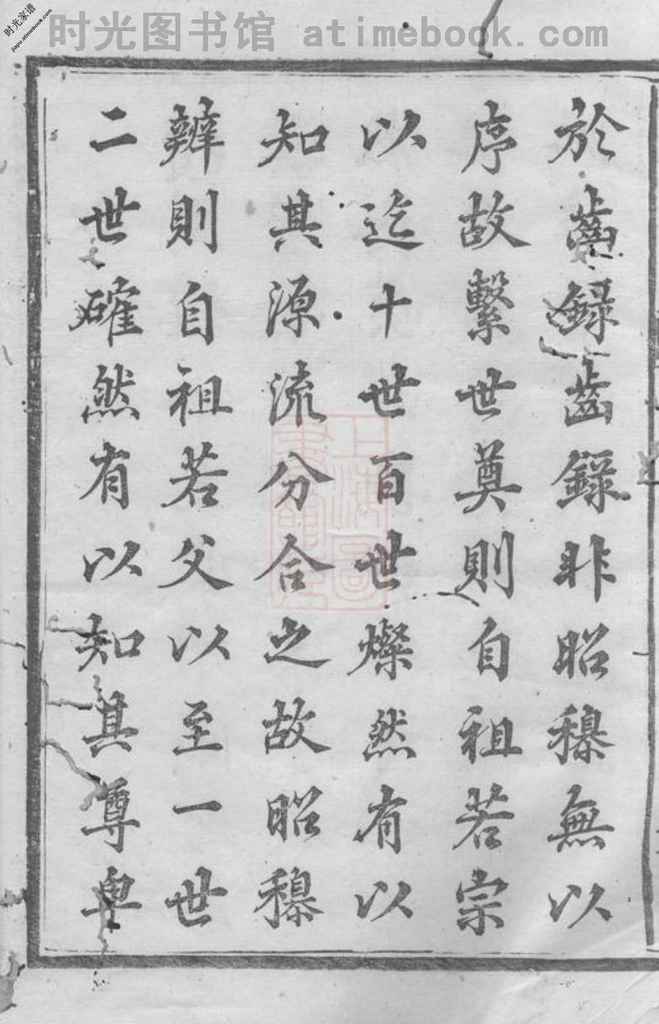 时光家谱
jiapu.atimebook.com
时光图书馆 atimebook.com
於齒錄齒錄非昭穆無以
序故繫世奠則自祖若宗
以迄十世百世燦然有以
知其源流分合之故昭穆
辨則自祖若父以至一世
二世確然有以知其尊卑